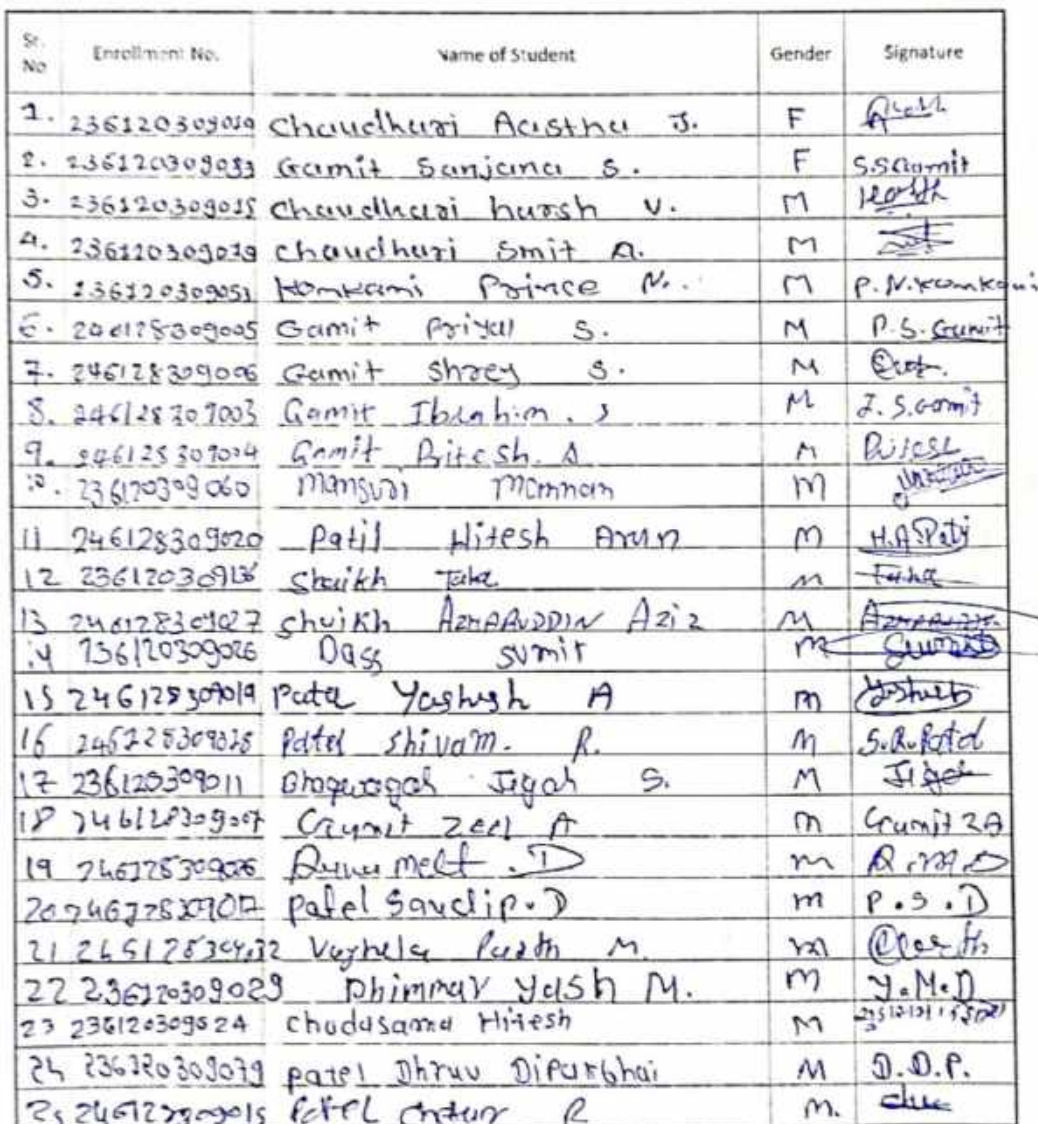 Sr. No Enrollment No. Name of Student Gender Signature
1. 236120309019 Chaudhari Aastha J. F
2. 236120309033 Gamit Sanjana S. F S.S.Gamit
3. 236120309015 Chaudhari harsh V. M Harsh
4. 236120309019 chaudhari Smit A. M
5. 236120309051 Komkami Prince N. M P.N.Komkami
6. 246128309005 Gamit Priyal S. M P.S.Gamit
7. 246128309006 Gamit Shrey S. M
8. 246128309003 Gamit Ibrahim. S M I.S.Gamit
9. 246128309004 Gamit Pritesh. A M
10. 236120309060 Mansuri Mannan M
11 246128309020 Patil Hitesh Arun M H.A.Patil
12 236120309136 Shaikh Taha M Taha
13 246128309027 Shaikh AZHARUDDIN Aziz M
14 236120309026 Dass Sumit M Sumit
15 246128309019 Patel Yashesh A M
16 246128309028 Patel Shivam. R. M S.R.Patel
17 236120309011 Jigar S. M Jigar
18 246128309007 Gamit Zeel A M Gamit ZA
19 246128309026 Meet .D M
20 246128309017 Patel Sandip.D M P.S.D
21 Vaghela Parth M. M Parth
22 236120309029 Dhimmar Yash M. M Y.M.D
23 236120309024 Chudasama Hitesh M
24 236120309079 Patel Dhruv Dipakbhai M D.D.P.
25 246128309015 Patel R M.